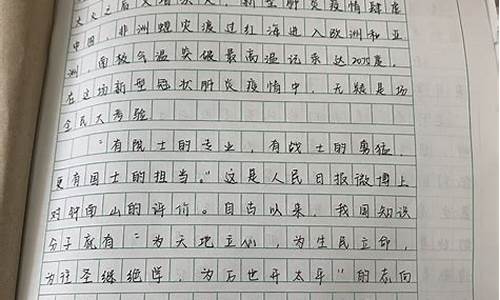 火灾之后又增添灾，新型肺炎疫情肆虐
中国，非洲蝗灾渡过红海进入欧洲和亚
洲，南极气温突破最高温记录达20℃度，
在这场新型冠状肺炎疫情中，无疑是场
全民大考验
“有院士的专业，有战士的勇猛，
更有国士的担当。”这是人民日报微博上
对钟南山的评价。自古以来，我国知识
分子就有“为天地立心，为生民立命，
为往圣继绝学，为万世开太平”的志向